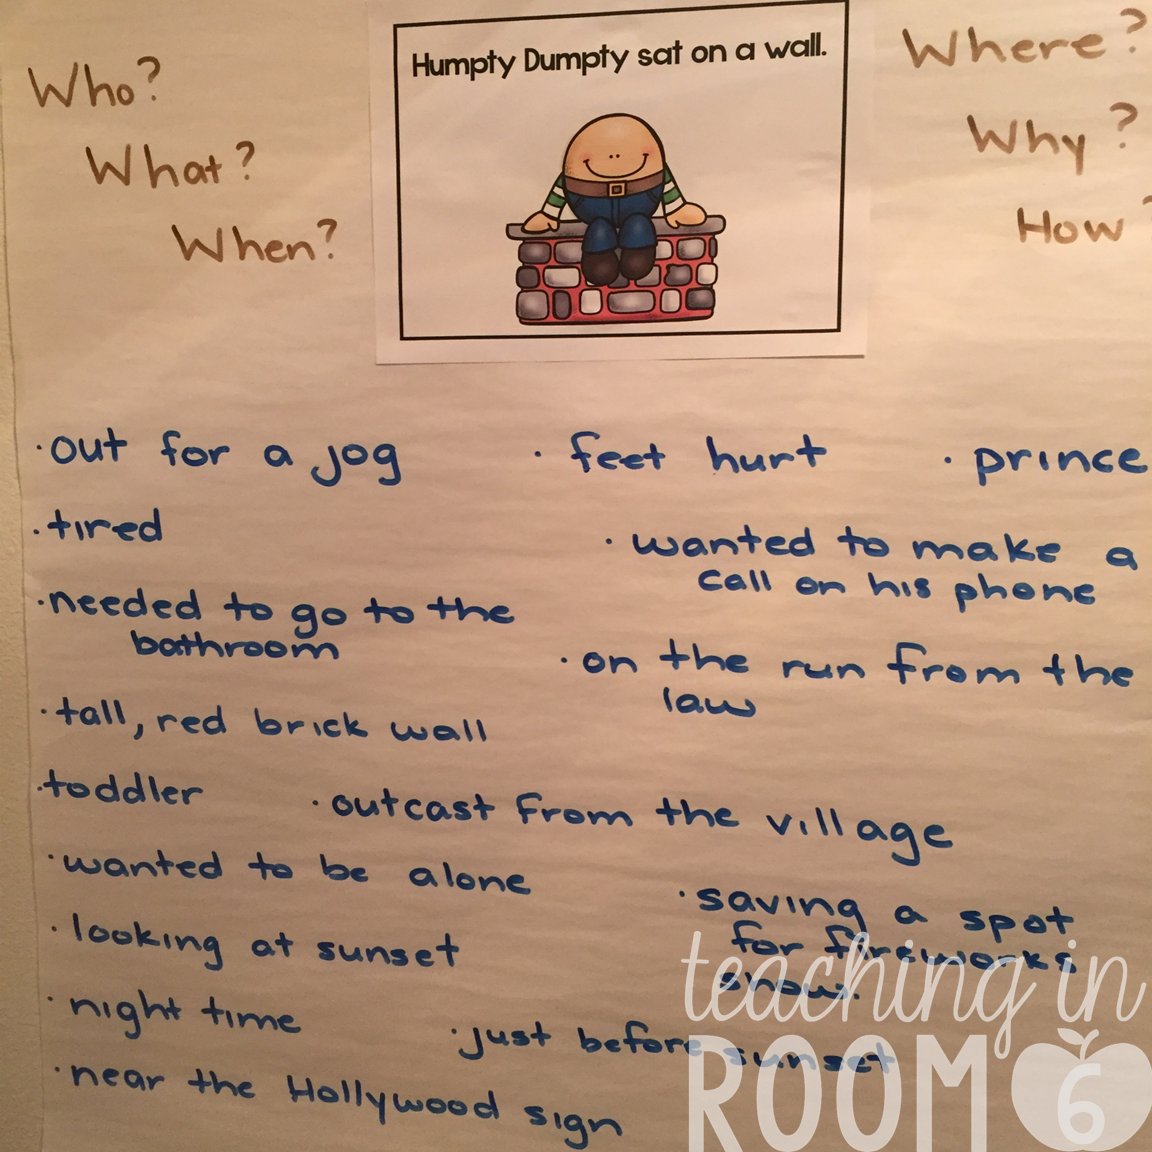 Humpty Dumpty sat on a wall.
Who?
What?
When?
Where?
Why?
How?
·out for a jog
·feet hurt
·prince
·tired
·wanted to make a
call on his phone
·needed to go to the
bathroom
·on the run from the
law
·tall, red brick wall
·toddler
·outcast from the village
·wanted to be alone
·saving a spot
for fireworks
show.
·looking at sunset
·night time
·just before sunset
·near the Hollywood sign
teaching in
ROOM 6